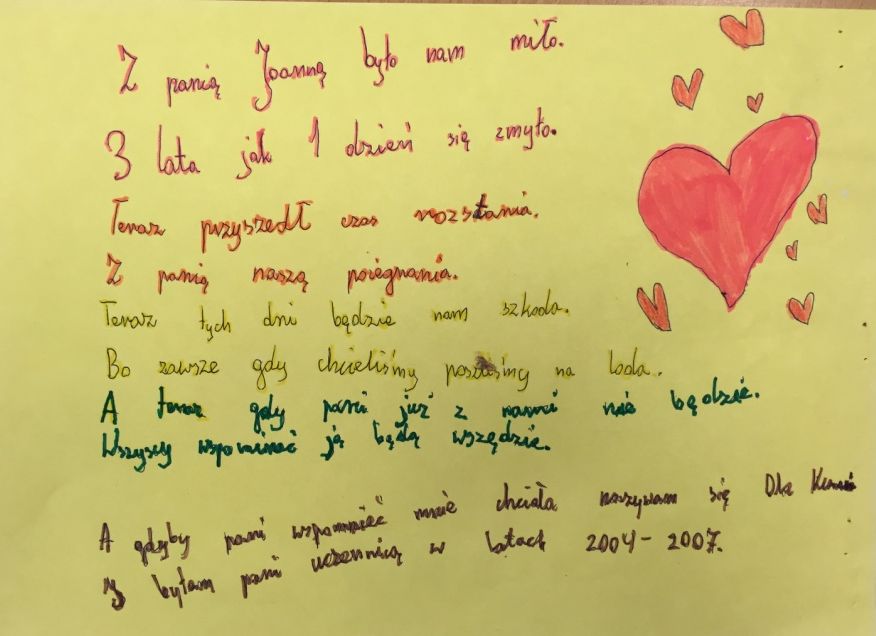 Z panią Joanną było nam miło.
3 lata jak 1 dzień się zmyło.
Teraz przyszedł czas rozstania.
Z panią naszą pożegnania.
Teraz tych dni będzie nam szkoda.
Bo zawsze gdy chcieliśmy poszliśmy na loda.
A teraz gdy pani już z nami nie będzie.
Wszyscy wspominać ją będą wszędzie.
A gdyby pani wspomnieć mnie chciała nazywam się Ola
I byłam pani uczennicą w latach 2004-2007.